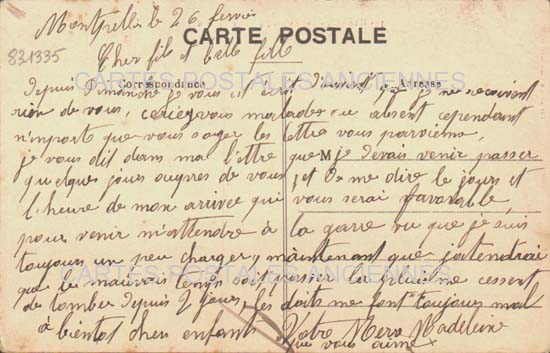 Montpellier le 26 fevrier
CARTE POSTALE
831335
Cher fils et belle fille
CARTES POSTALES ANCIENNES
Correspondance
Adresse
Depuis Dimanche je vous et ecrit d'avant ne recevant
rien de vous, seriez vous malades ou absent cependant
n'importe que vous soyez les lettre vous parvienne,
je vous dit dans ma l'ettre que je devais venir passer
quelques jours aupres de vous, et de me dire le jours et
l'heure de mon arrivee qui vous serai favorable,
pour venir m'attendre à la garre vu que je suis
toujours un peu charger, maintenant que j'attendrai
que le mauvais temps soit passer la pluie ne cessent
de tomber depuis 2 jours, les doits me font toujours mal
à bientot cher enfants Votre Mere Madeleine
que vous aime
CARTES POSTALES ANCIENNES